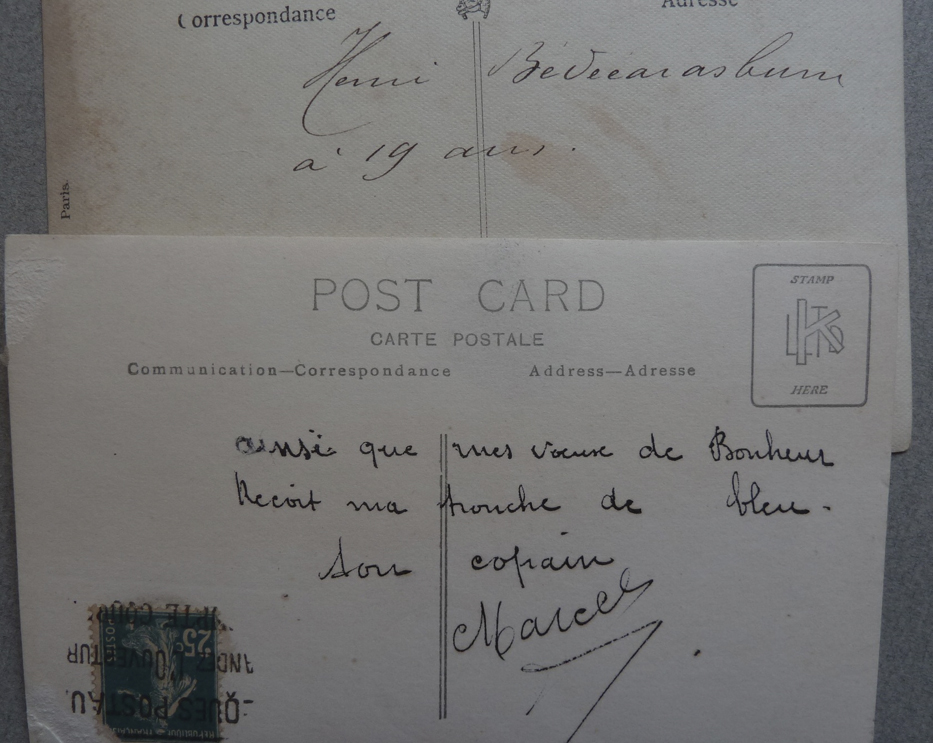 Correspondance
Adresse
Henri Bédécarasburu
à 19 ans.
Paris.
POST CARD
CARTE POSTALE
Communication—Correspondance
Address—Adresse
STAMP
HERE
ainsi que mes vœux de Bonheur
Recoit ma trouche de bleu.
ton copain
Marcel
25c
POSTES
-QUES POSTAU
ANDEZ L'OUVERTUR
TE COUR